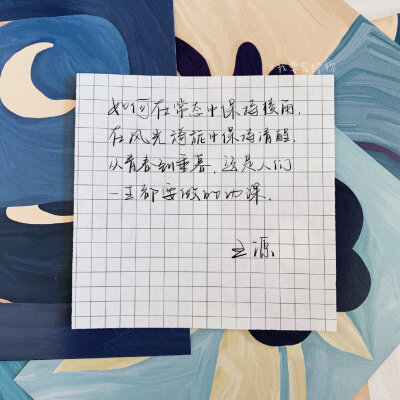 我要写给你
如何在常态中保持棱角,
在风光旖旎中保持清醒,
从青春到垂暮,这是人们
一生都要做的功课.
王源